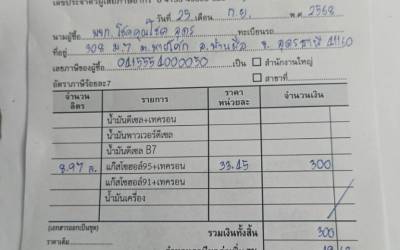 วันที่ 25 เดือน ก.ย. พ.ศ. 2568
นามผู้ซื้อ หจก. โชคคูณโชค อุดร ทะเบียนรถ
ที่อยู่ 308 ม.7 ต. อ.บ้านผือ จ. อุดรธานี 41160
เลขภาษีของผู้ซื้อ 0415554000030 เป็น สำนักงานใหญ่
อัตราภาษีร้อยละ7 สาขาที่
จำนวน ลิตร รายการ ราคา หน่วยละ จำนวนเงิน
น้ำมันดีเซล+เทครอน
น้ำมันพาวเวอร์ดีเซล
น้ำมันดีเซล B7
8.97 ล. แก๊สโซฮอล์95+เทครอน 33.45 300
แก๊สโซฮอล์91+เทครอน
น้ำมันเครื่อง
(เอกสารออกเป็นชุด) รวมเงินทั้งสิ้น 300
ราคาเต็ม